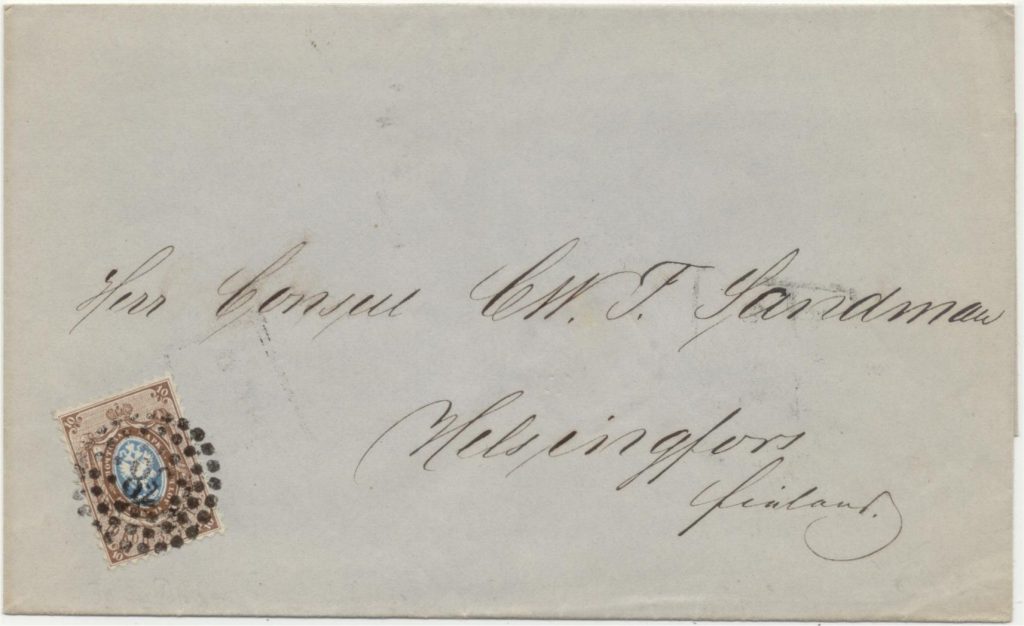 Herr Consul C. W. T. Sandman
Helsingfors
Finland.
10
10
10
10